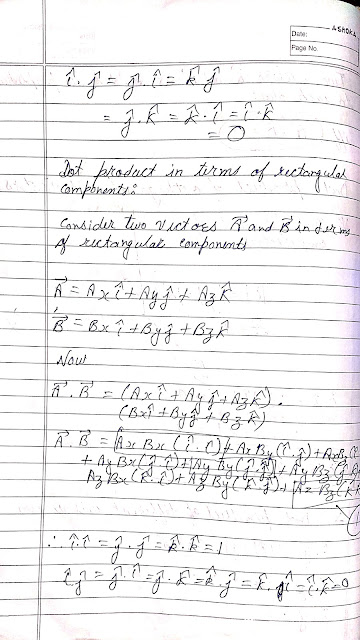 ASHOKA
Date:
Page No.
î . ĵ = ĵ . î = k̂ ĵ
= ĵ . k̂ = k̂ . î = î . k̂
= 0
Dot product in terms of rectangular
components:
Consider two vectors A⃗ and B⃗ in terms
of rectangular components
A⃗ = Ax î + Ay ĵ + Az k̂
B⃗ = Bx î + By ĵ + Bz k̂
Now
A⃗ . B⃗ = (Ax î + Ay ĵ + Az k̂) .
(Bx î + By ĵ + Bz k̂)
A⃗ . B⃗ = Ax Bx (î . î) + Ax By (î . ĵ) + Ax Bz (î
+ Ay Bx (ĵ . î) + Ay By (ĵ . ĵ) + Ay Bz (ĵ . k̂
Az Bx (k̂ . î) + Az By (k̂ . ĵ) + Az Bz (k̂
∴ î . î = ĵ . ĵ = k̂ . k̂ = 1
î ĵ = ĵ . î = ĵ . k̂ = k̂ . ĵ = k̂ . î = î . k̂ = 0